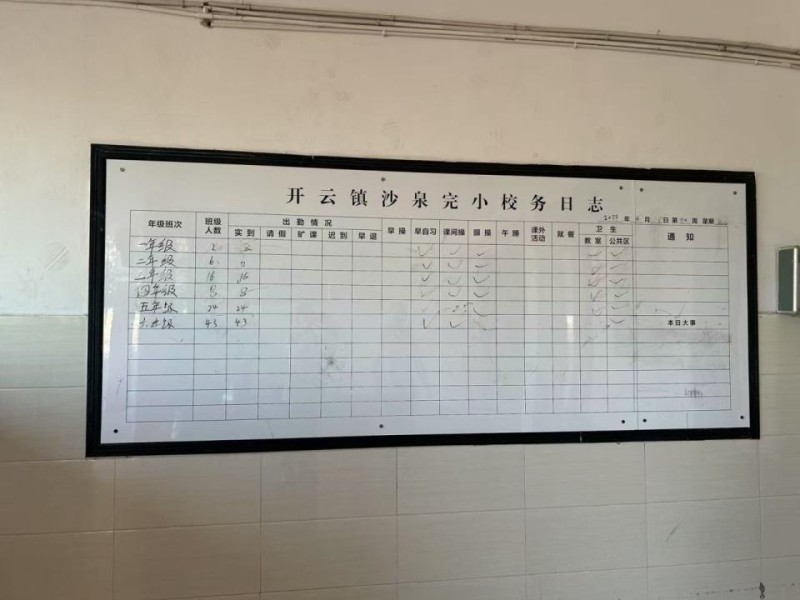 开云镇沙泉完小校务日志
年 月 日 第 周 星期
年级班次 班级人数 出勤情况 早操 早自习 课间操 眼操 午睡 课外活动 就餐 卫生 通知
实到 请假 旷课 迟到 早退 教室 公共区
一年级 2 2 ✓ ✓ ✓ ✓ ✓
二年级 6 ✓ ✓ ✓ ✓ ✓
三年级 16 16 ✓ ✓ ✓ ✓ ✓
四年级 8 8 ✓ ✓ ✓ ✓ ✓
五年级 24 24 ✓ ✓ ✓ ✓
六年级 43 43 ✓ ✓ ✓ 本日大事